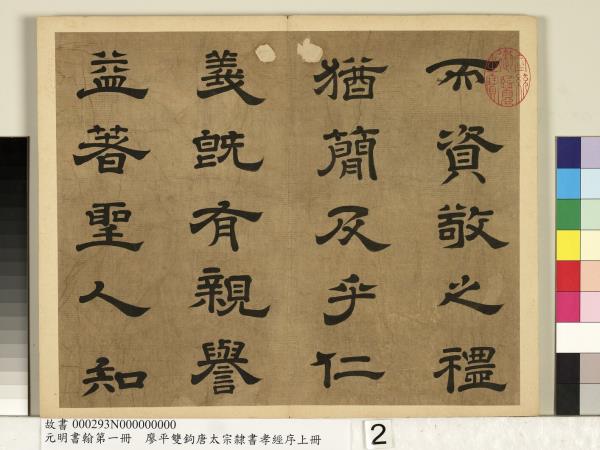 而資敬之禮
猶簡及乎仁
義旣有親譽
益著聖人知
故書 000293N000000000
元明書翰第一冊　廖平雙鉤唐太宗隸書孝經序上冊
2